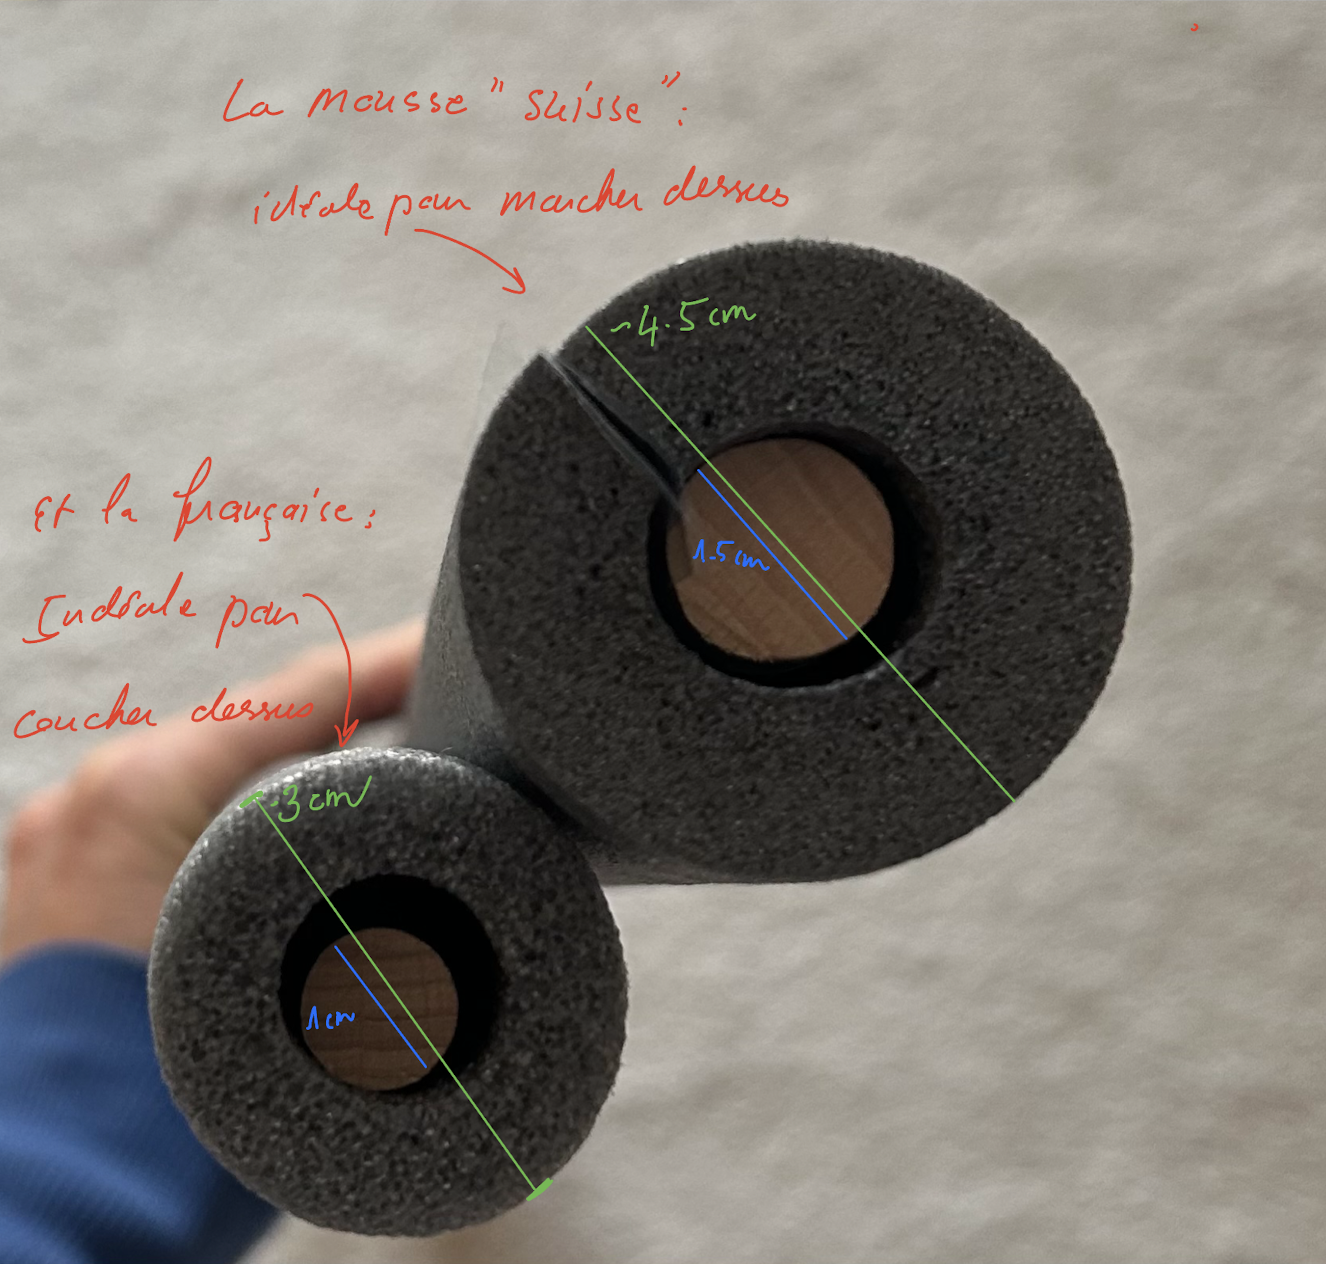 La mousse "suisse":
idéale pour marcher dessus
~4.5cm
1.5cm
Et la française:
Indéale pour
coucher dessus
~3cm
1cm